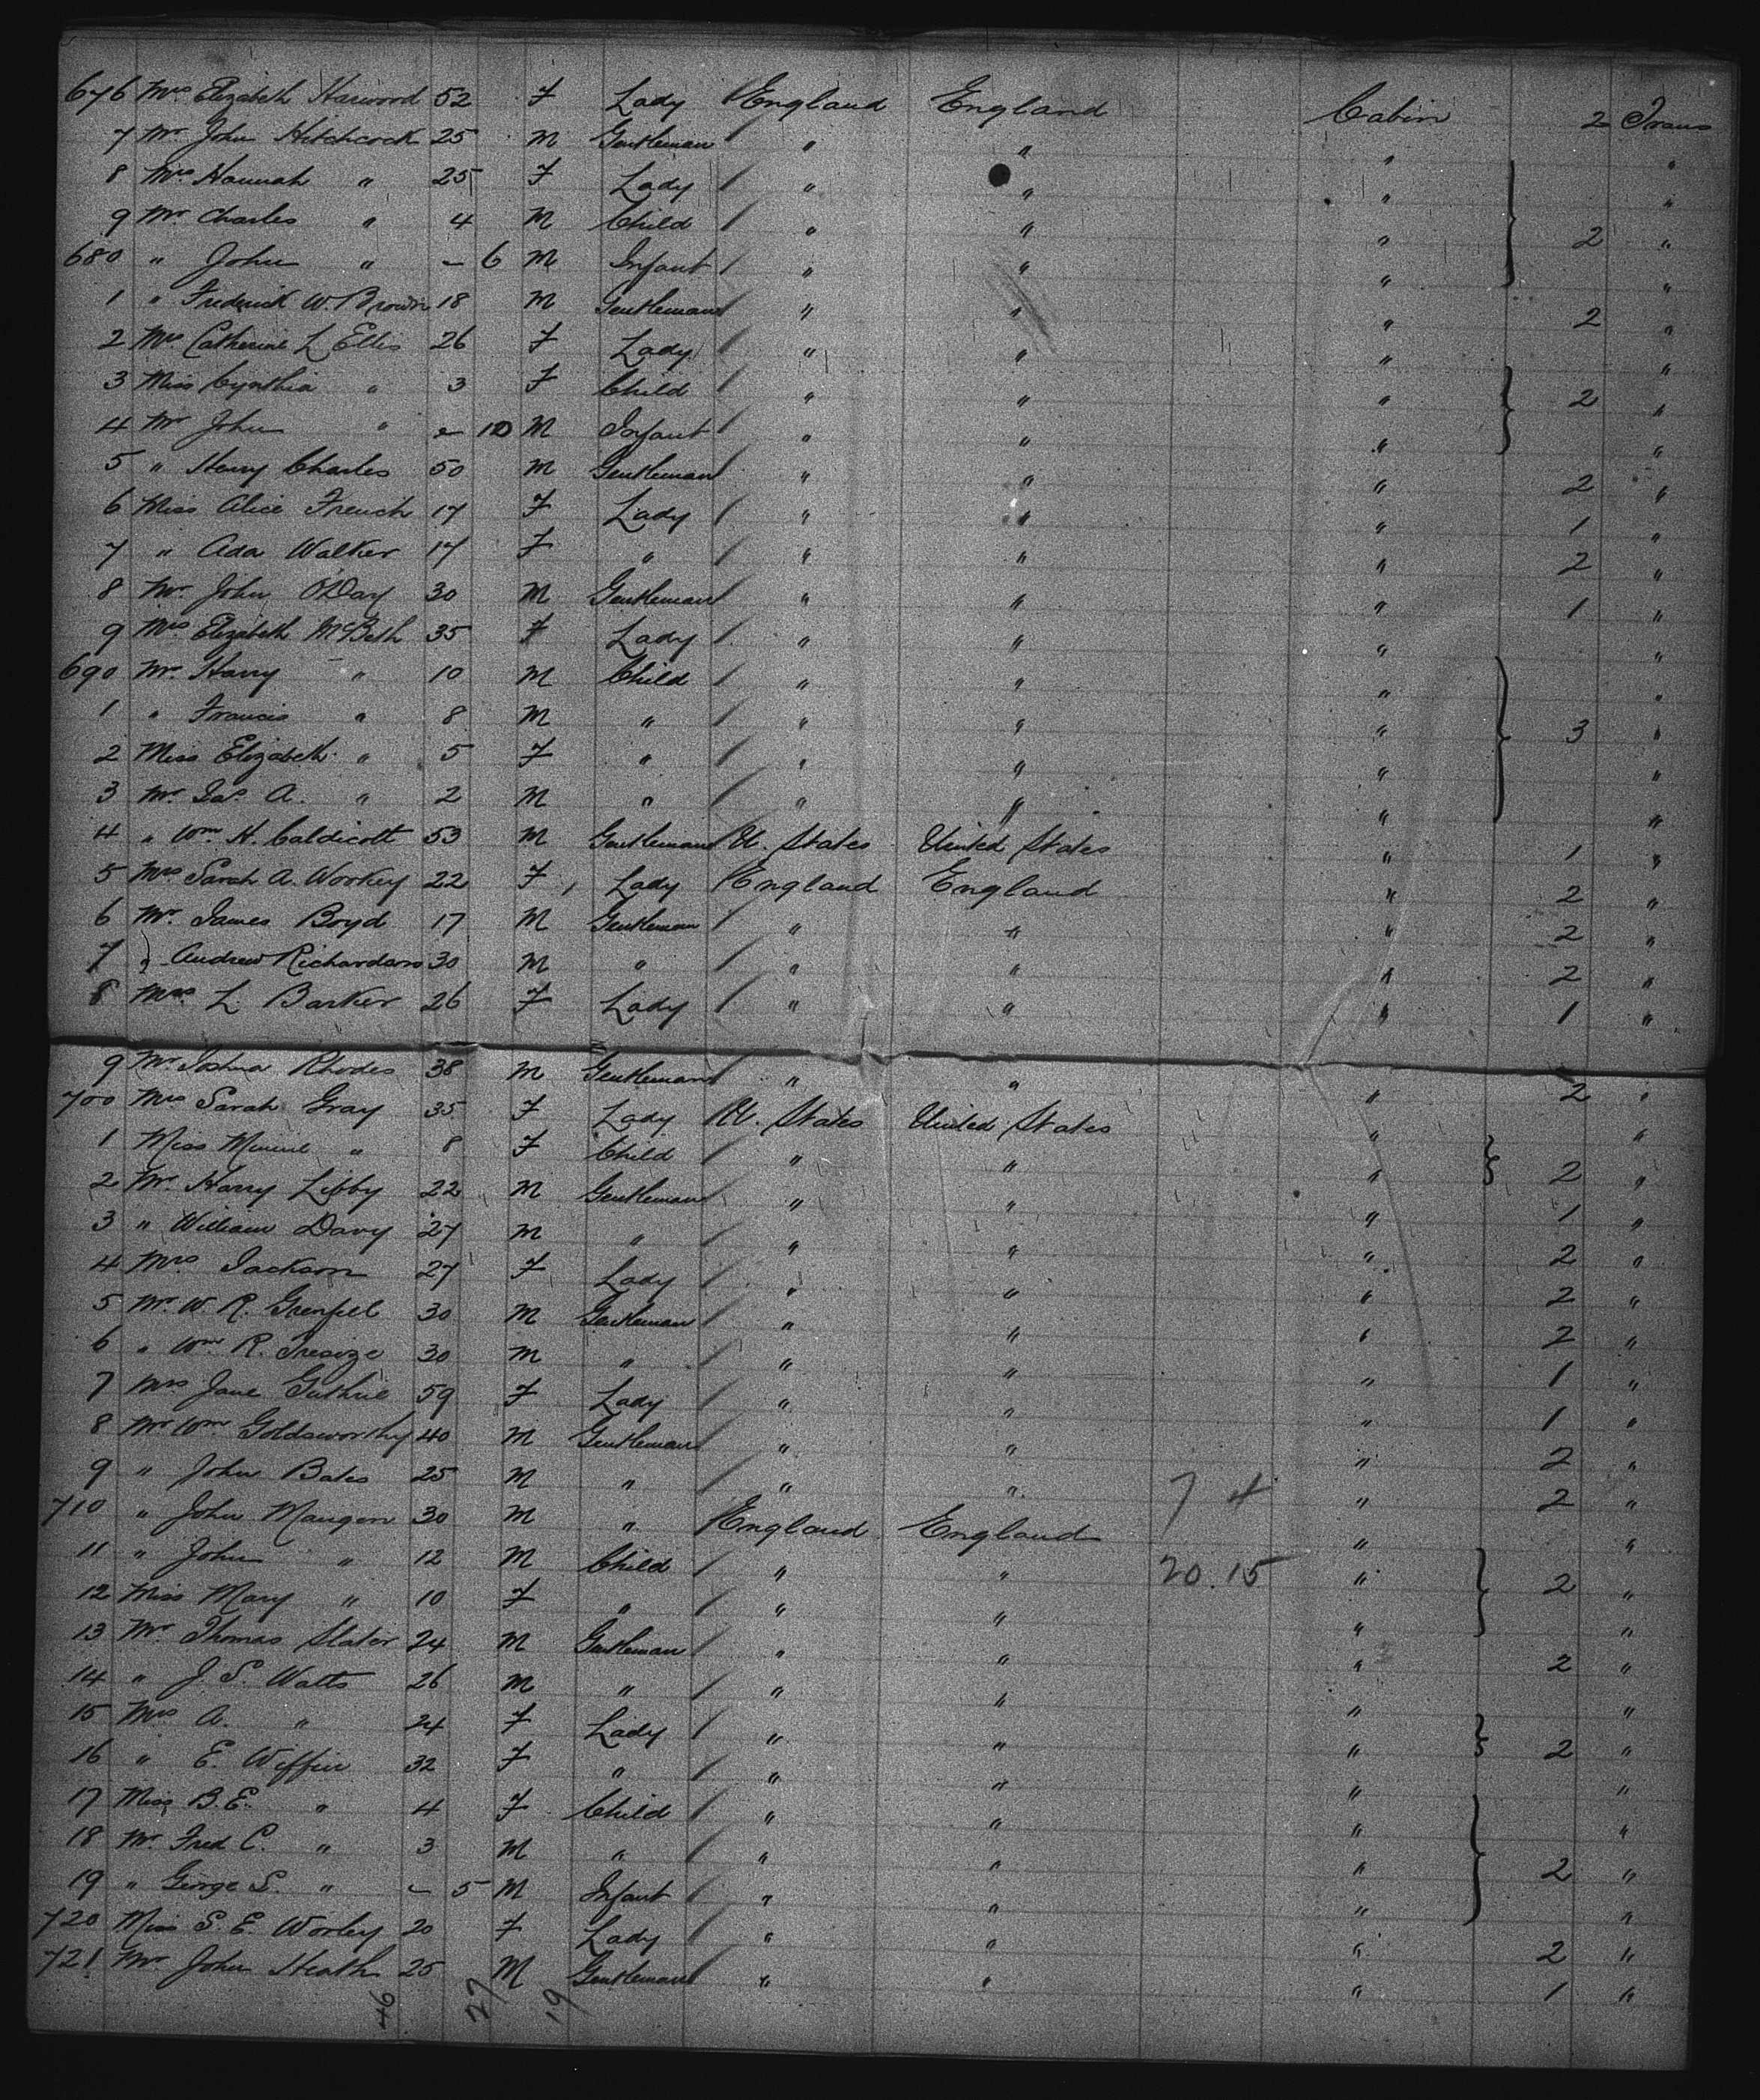 676 Mrs Elizabeth Harwood 52 F Lady England England Cabin 2 Trans
7 Mr John Hitchcock 25 M Gentleman " " " "
8 Mrs Hannah " 25 F Lady " " " "
9 Mr Charles " 4 M Child " " " 2 "
680 " John " - 6 M Infant " " " "
1 " Frederick W. Brown 18 M Gentleman " " " 2 "
2 Mrs Catherine L Ellis 26 F Lady " " " "
3 Miss Cynthia " 3 F Child " " " 2 "
4 Mr John " - 10 M Infant " " " "
5 " Henry Charles 50 M Gentleman " " " 2 "
6 Miss Alice French 17 F Lady " " " 1 "
7 " Ada Walker 17 F " " " " 2 "
8 Mr John O'Day 30 M Gentleman " " " 1 "
9 Mrs Elizabeth McBeth 35 F Lady " " " "
690 Mr Harry " 10 M Child " " " "
1 " Francis " 8 M " " " " 3 "
2 Miss Elizabeth " 5 F " " " " "
3 Mr Jas. A. " 2 M " " " " "
4 " Wm H. Caldicott 53 M Gentleman U. States United States " 1 "
5 Mrs Sarah A. Workey 22 F Lady England England " 2 "
6 Mr. James Boyd 17 M Gentleman " " " 2 "
7 " Andrew Richardson 30 M " " " " 2 "
8 Mrs L Barker 26 F Lady " " " 1 "
9 Mr Joshua Rhodes 38 M Gentleman " " " 2 "
700 Mrs Sarah Gray 35 F Lady U. States United States " "
1 Miss Minnie " 8 F Child " " " 2 "
2 Mr. Harry Libby 22 M Gentleman " " " 1 "
3 " William Davy 27 M " " " " 2 "
4 Mrs Jackson 27 F Lady " " " 2 "
5 Mr W. R. Grenfell 30 M Gentleman " " " 2 "
6 " Wm R. Tresize 30 M " " " " 1 "
7 Mrs Jane Guthrie 59 F Lady " " " 1 "
8 Mr Wm Goldsworthy 40 M Gentleman " " " 2 "
9 " John Bates 25 M " " " 7 4 " 2 "
710 " John Maugen 30 M " England England " "
11 " John " 12 M Child " " 20.15 " 2 "
12 Miss Mary " 10 F " " " " "
13 Mr Thomas Slater 24 M Gentleman " " " 2 "
14 " J. S. Watts 26 M " " " " "
15 Mrs A. " 24 F Lady " " " 2 "
16 " E. Wiffin 32 F " " " " "
17 Miss B. E. " 4 F Child " " " "
18 Mr. Fred C. " 3 M " " " " 2 "
19 " George S. " - 5 M Infant " " " "
720 Miss S. E. Worley 20 F Lady " " " 2 "
721 Mr John Heath 25 M Gentleman " " " 1 "
46 27 19